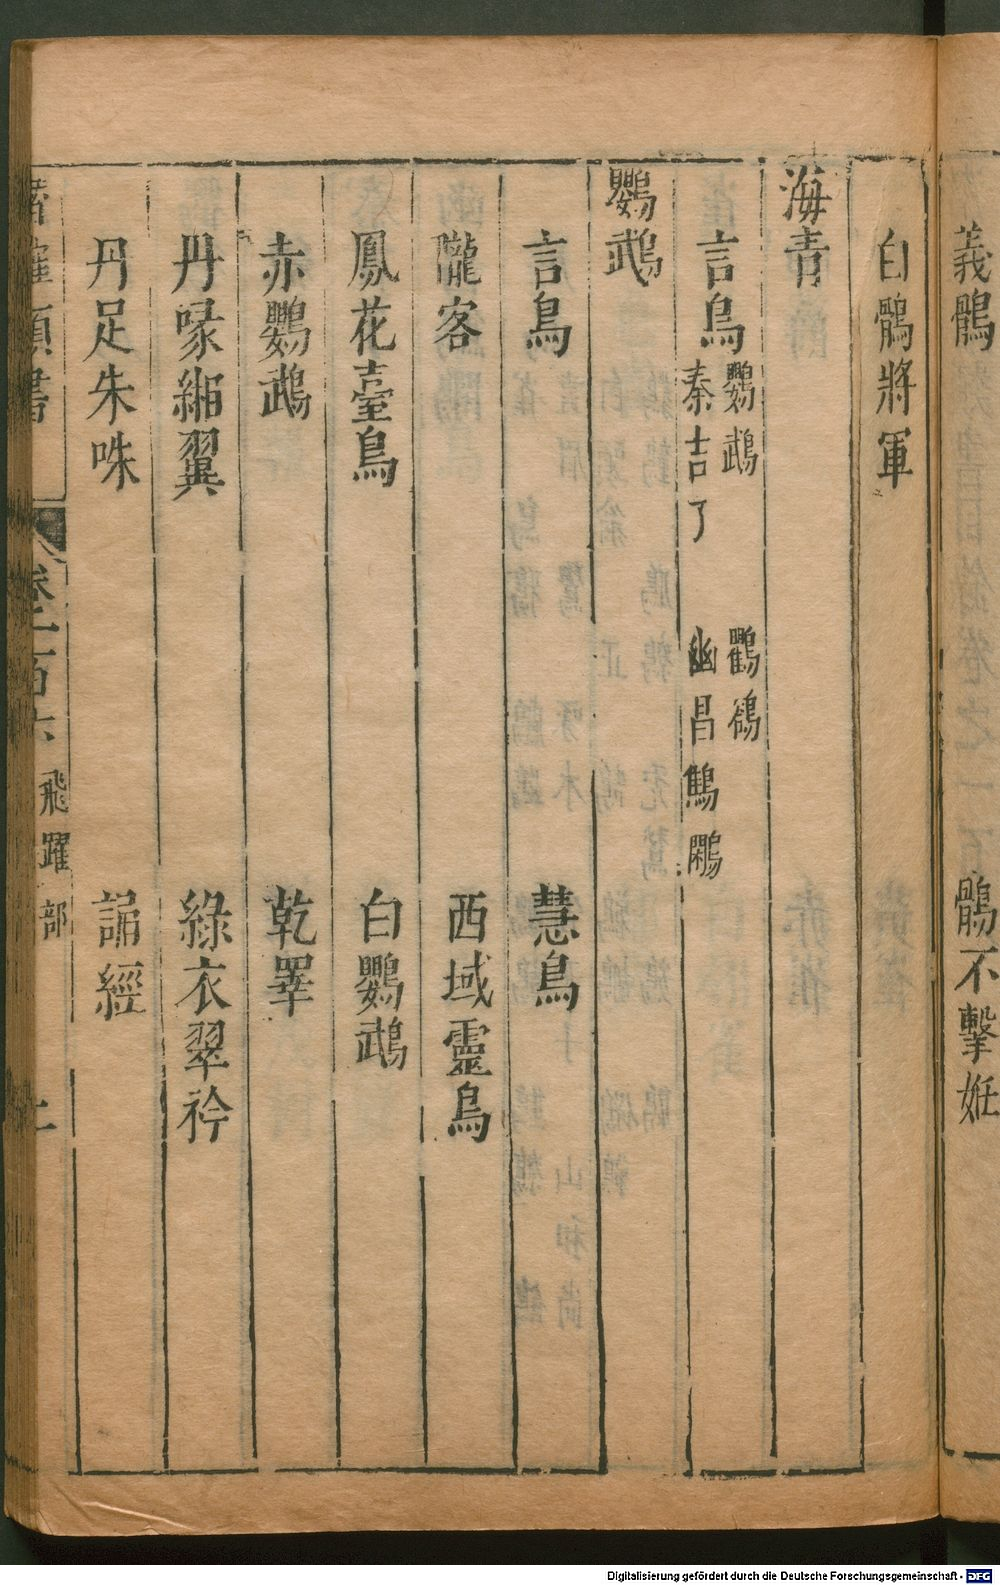 義鶻　鶻不擊姙
白鶻將軍
海青
言鳥　鸚鵡　秦吉了　鸜鵒　幽昌　鷦鵬
鸚鵡
言鳥　慧鳥
隴客　西域靈鳥
鳳花臺鳥　白鸚鵡
赤鸚鵡　乾睪
丹喙緗翼　綠衣翠衿
丹足朱咮　誦經
類書　卷一百六　飛躍部　上
Digitalisierung gefördert durch die Deutsche Forschungsgemeinschaft - DFG